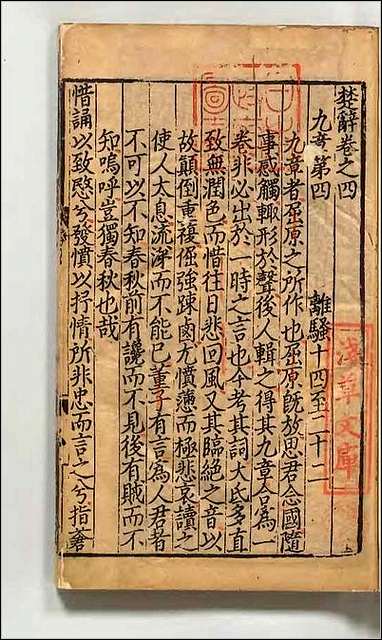 楚辭卷之四
九章第四
離騷十四至二十二
九章者屈原之所作也屈原既放思君念國隨
事感觸輒形於聲後人輯之得其九章合為一
卷非必出於一時之言也今考其詞大氐多直
致無潤色而惜往日悲回風又其臨絕之音以
故顛倒重複倔強疎鹵尤憤懣而極悲哀讀之
使人太息流涕而不能已董子有言為人君者
不可以不知春秋前有讒而不見後有賊而不
知嗚呼豈獨春秋也哉
惜誦以致愍兮發憤以抒情所非忠而言之兮指蒼
淺草文庫